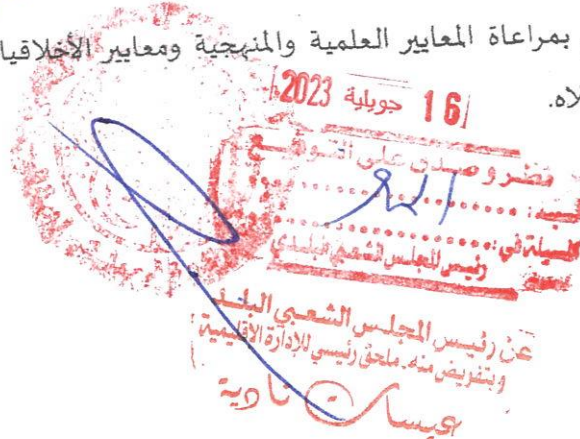 بمراعاة المعايير العلمية والمنهجية ومعايير الأخلاقيا
لاه.
16 جويلية 2023
نظر وصدق على التوقيع
السيد :
المسيلة في :
رئيس المجلس الشعبي البلدي
عن رئيس المجلس الشعبي البلدي
وبتفويض منه، ملحق رئيسي للإدارة الإقليمية
نادية